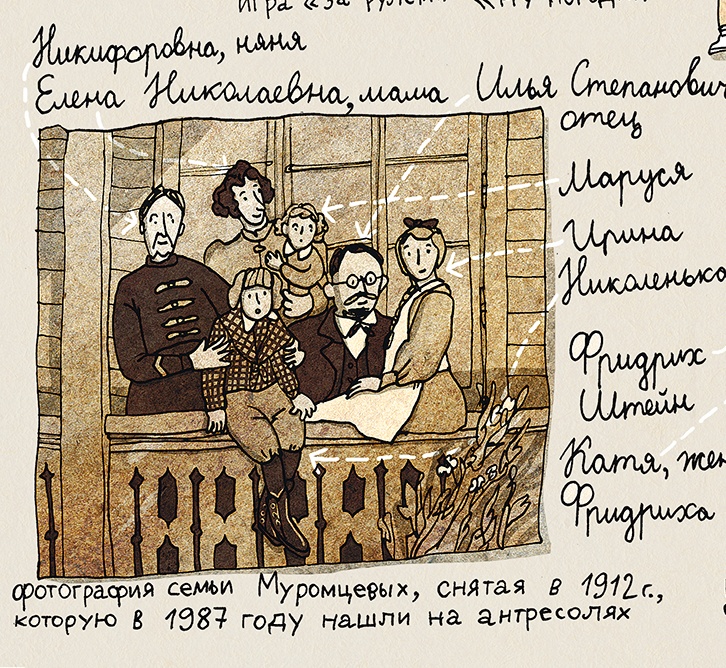 игра «За рулём»
Никифоровна, няня
Елена Николаевна, мама
Илья Степанович
отец
Маруся
Ирина
Николенька
Фридрих
Штейн
Катя, жен
Фридриха
фотография семьи Муромцевых, снятая в 1912 г.,
которую в 1987 году нашли на антресолях